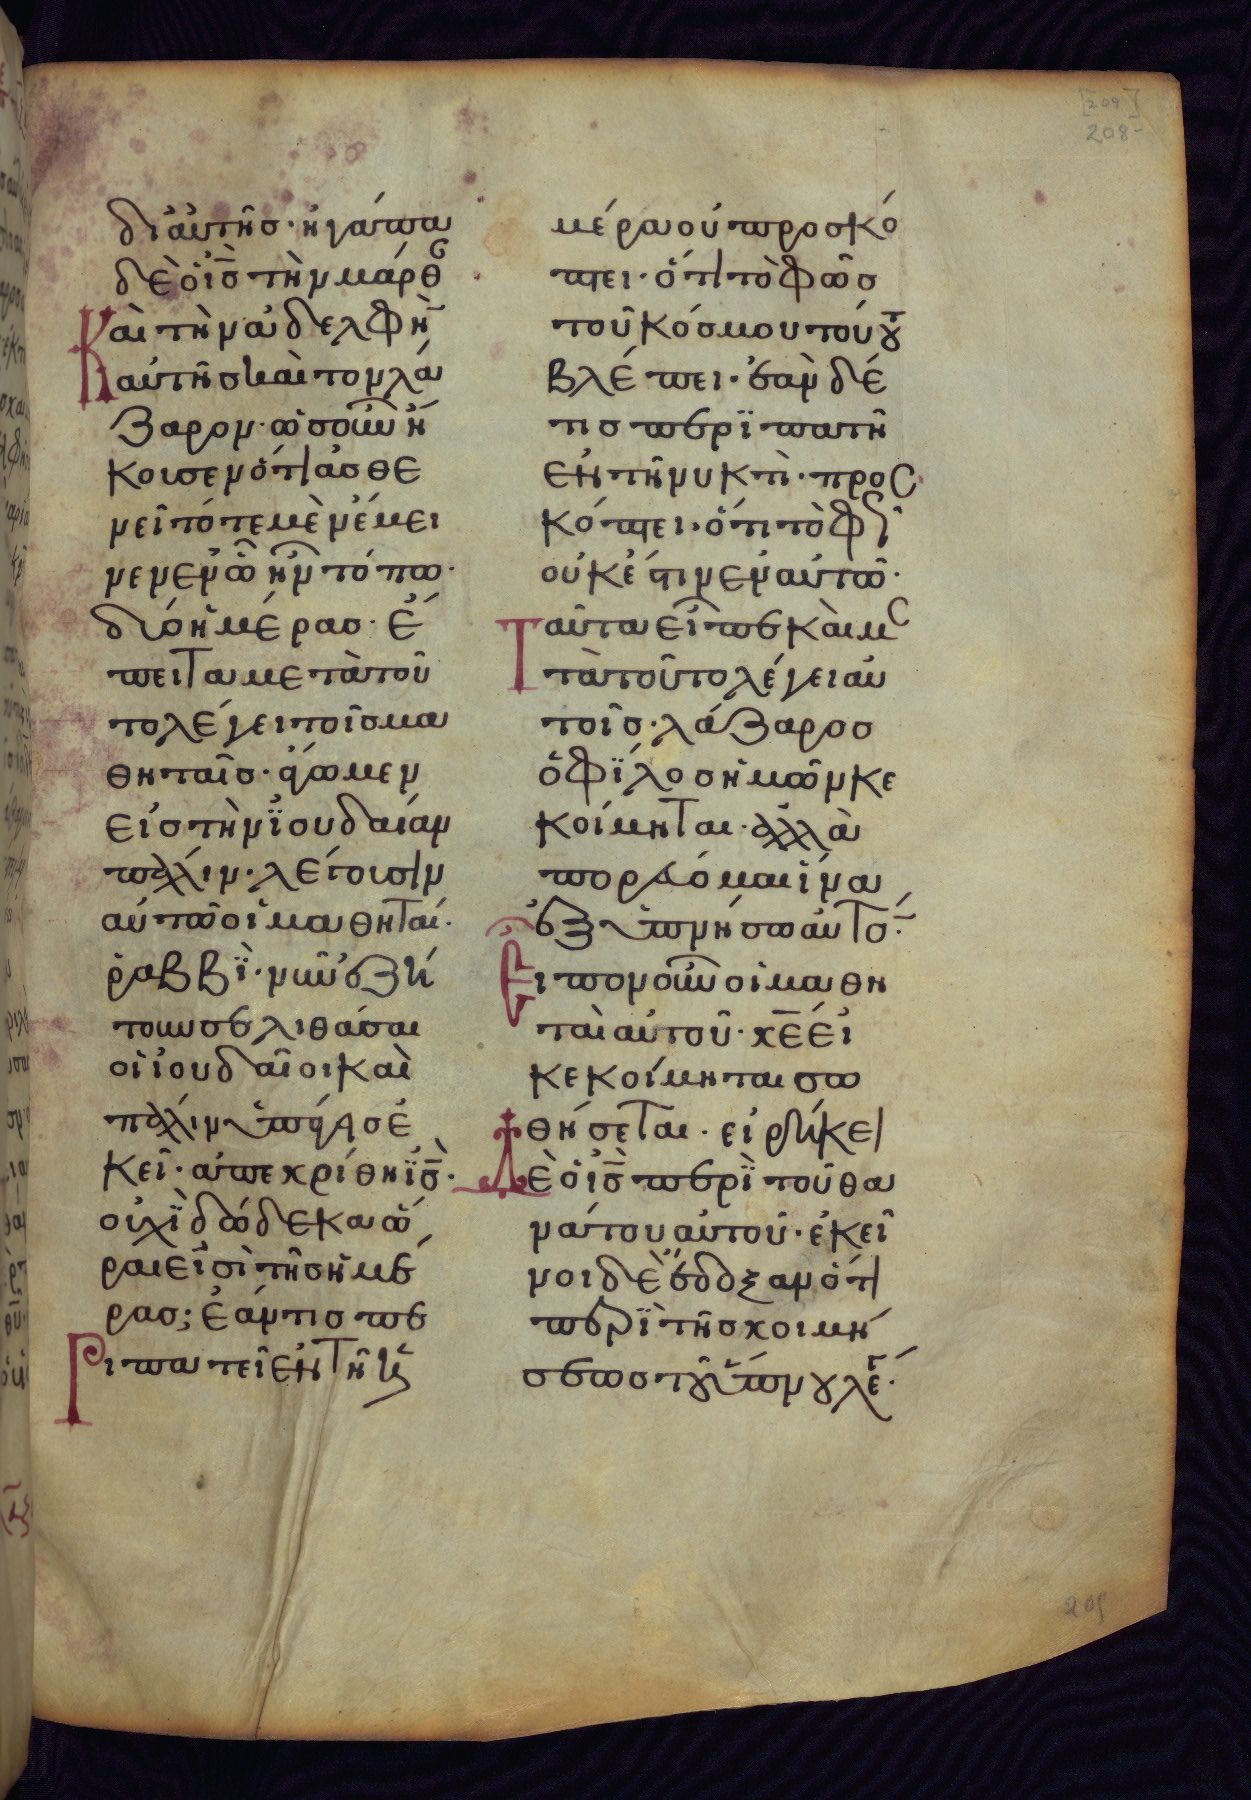 [209]
208
δι' αὐτῆσ· ἠγάπα
δὲ ὁ ἰσ̅ τὴν μάρθα
Καὶ τὴν ἀδελφὴν
αὐτῆσ καὶ τὸν λά
ζαρον· ὡσ οὖν ἤ
κουσεν ὅτι ἀσθε
νεῖ τότε μὲν ἔμει
νεν ἐν ᾧ ἦν τόπω·
δύο ἡμέρασ· ἔ
πειτα μετὰ τοῦ
το λέγει τοῖσ μα
θηταῖσ· ἄγωμεν
εἰσ τὴν ϊουδαίαν
πάλιν· λέγουσιν
αὐτῶ οἱ μαθηταί·
ῥαββϊ· νῦν ἐζή
τουν σε λιθάσαι
οἱ ἰουδαῖοι καὶ
πάλιν ὑπάγεισ ἐ
κεῖ· ἀπεκρίθη ϊσ̅·
οὐχϊ δώδεκα ὧ
ραι εἰσὶ τῆσ ἡμέ
ρασ; ἐάν τισ πε
Ριπατεῖ ἐν τῆ ἡ
μέρα οὐ προσκό
πτει· ὅτι τὸ φῶσ
τοῦ κόσμου τούτου
βλέπει· ἐὰν δέ
τισ περϊπατῆ
ἐν τῆ νυκτὶ· προσ
κόπτει· ὅτι τὸ φῶσ
οὐκ ἔστιν ἐν αὐτῶ·
Ταῦτα εἶπε καὶ με
τὰ τοῦτο λέγει αὐ
τοῖσ· λάζαροσ
ὁ φϊλοσ ἡμῶν κε
κοίμηται· ἀλλὰ
πορεύομαι ἵνα
ἐξυπνήσω αὐτόν·
Εἶπον οὖν οἱ μαθη
ταὶ αὐτοῦ· κε̅ εἰ
κεκοίμηται σω
θήσεται· εἰρήκει
Δὲ ὁ ἰσ̅ περϊ τοῦ θα
νάτου αὐτοῦ· ἐκεῖ
νοι δὲ ἔδοξαν ὅτι
περϊ τῆσ κοιμή
σεωσ τοῦ ὕπνου λέγει·
209